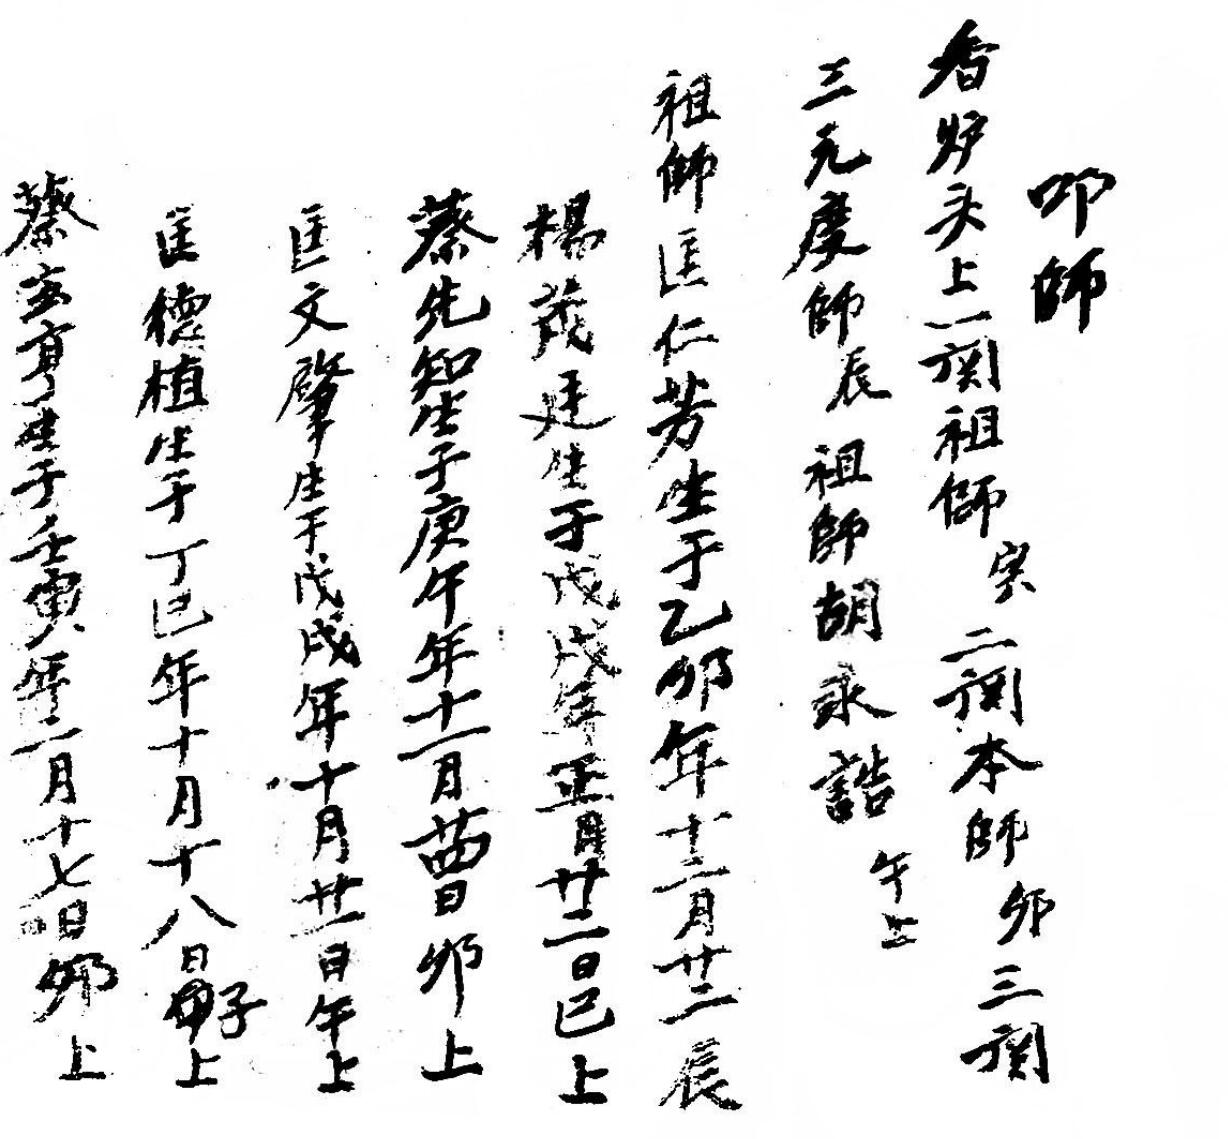 叩師
香炉头上一関祖師宗二関本師卯三関
三元度師辰祖師胡永誥午上
祖師匡仁芳生于乙卯年十二月廿二辰
楊茂廷生于戊戌年正月廿二日巳上
蔡先知生于庚午年十一月廿四日卯上
匡文肇生于戊戌年十月廿一日午上
匡德植生于丁巳年十月十八日子上
蔡亨生于壬寅年二月十七日卯上